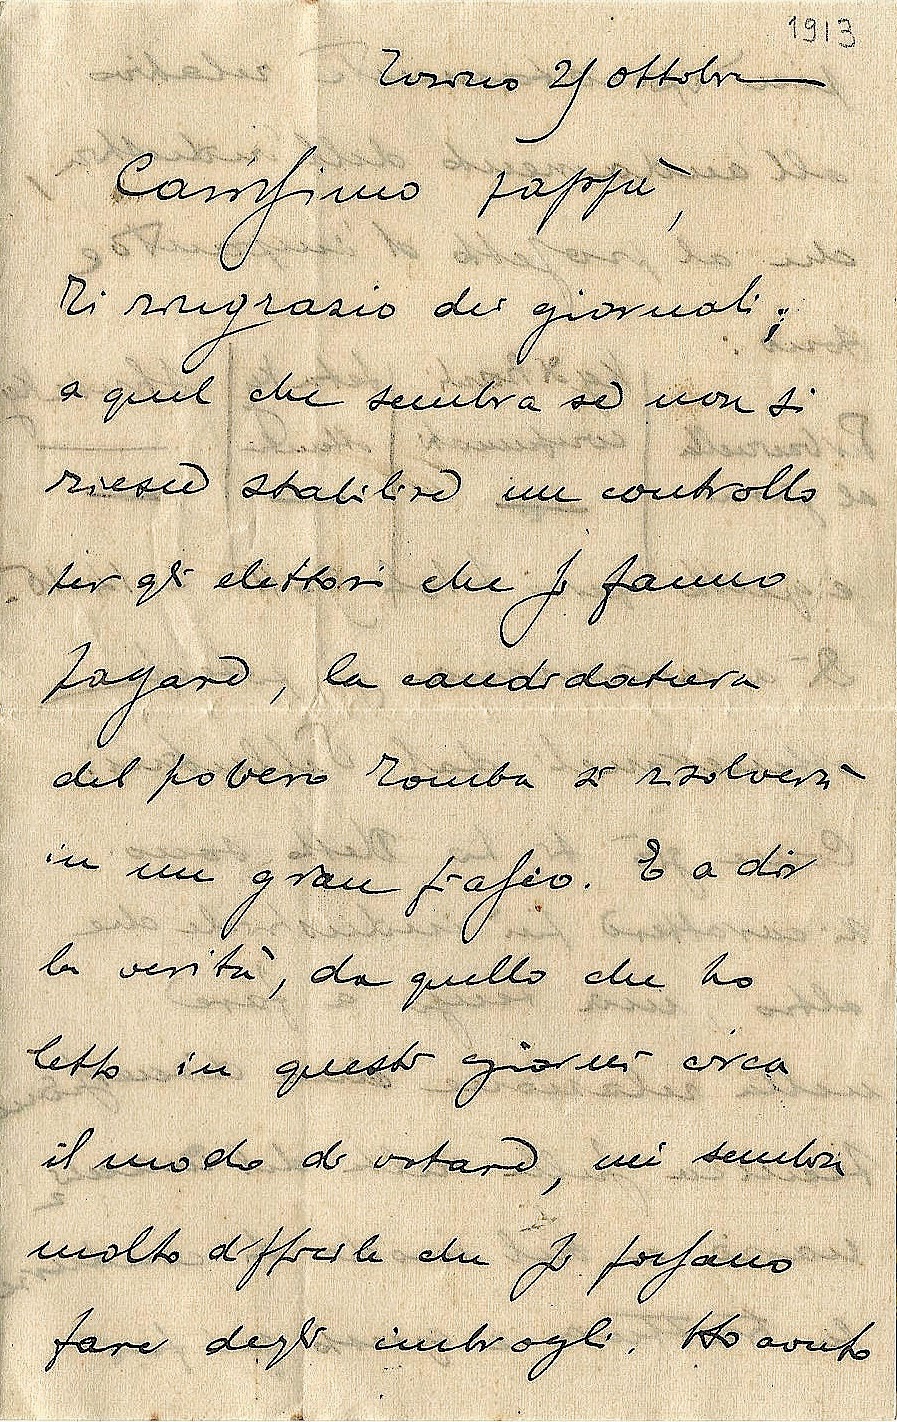 1913
Torino 25 ottobre
Carissimo pappà,
Ti ringrazio dei giornali;
a quel che sembra se non si
riesce stabilire un controllo
per gli elettori che si fanno
pagare, la candidatura
del povero Romba si risolverà
in un gran fiasco. E a dir
la verità, da quello che ho
letto in questi giorni circa
il modo di votare, mi sembra
molto difficile che si possano
fare degli imbrogli. Ho avuto